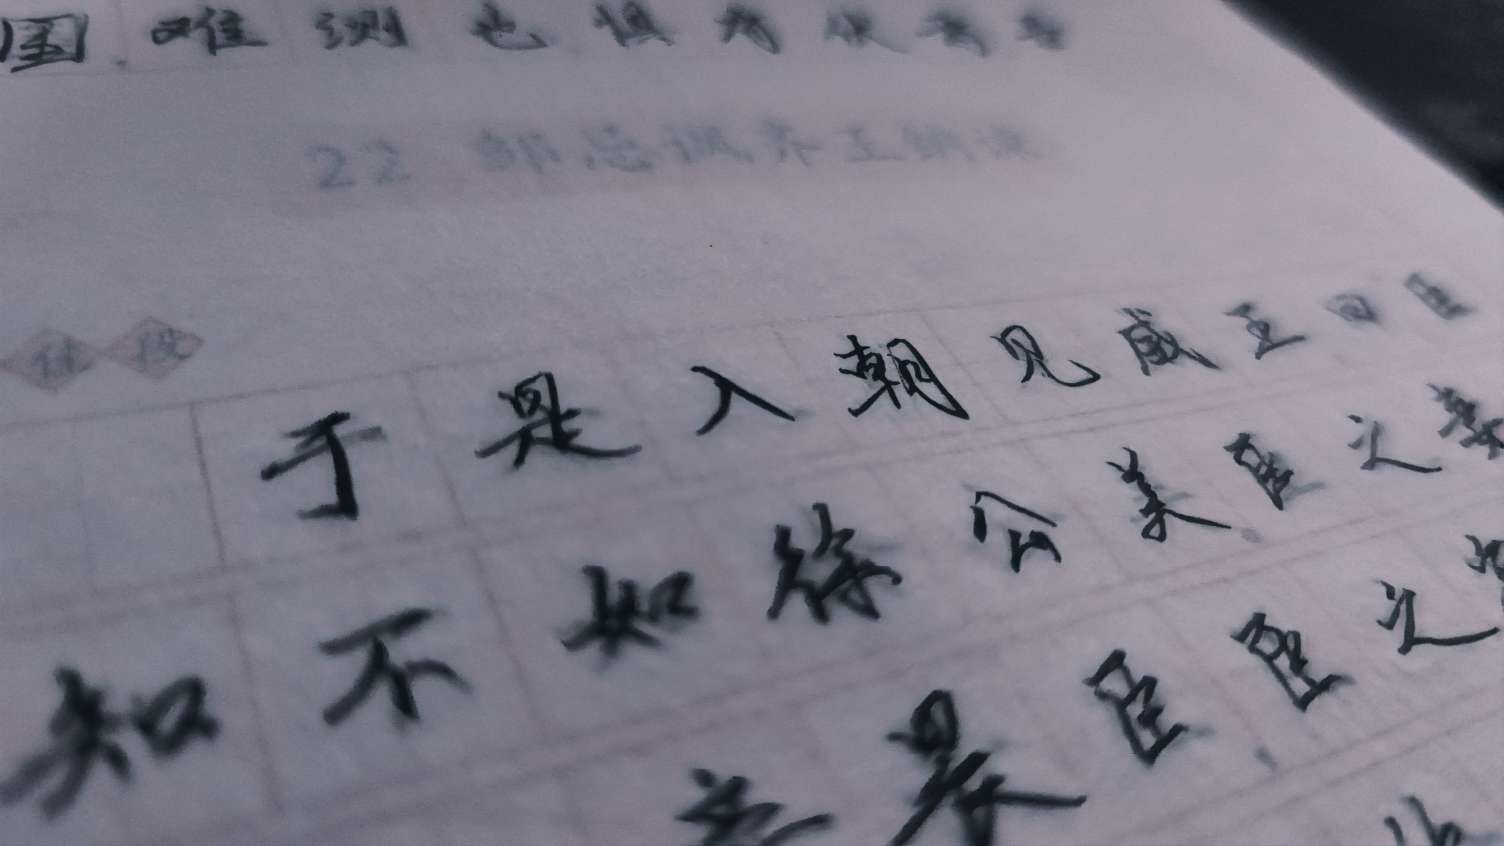 国难测也惧有伏焉吾
22 邹忌讽齐王纳谏
于是入朝见威王曰臣
知不如徐公美臣之妻
妾畏臣臣之